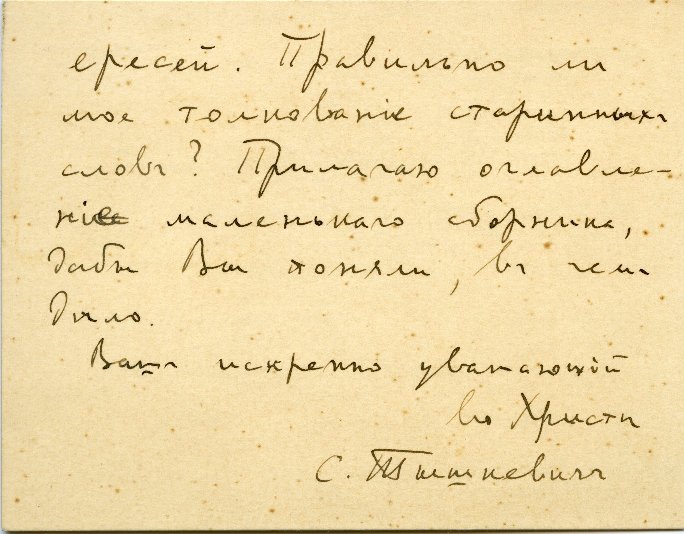 ересей. Правильно ли
мое толкованіе старинныхъ
словъ? Прилагаю оглавле-
ніе маленькаго сборника,
дабы Вы поняли, въ чемъ
дѣло.
Вашъ искренно уважающій
во Христѣ
С. Тышкевичъ